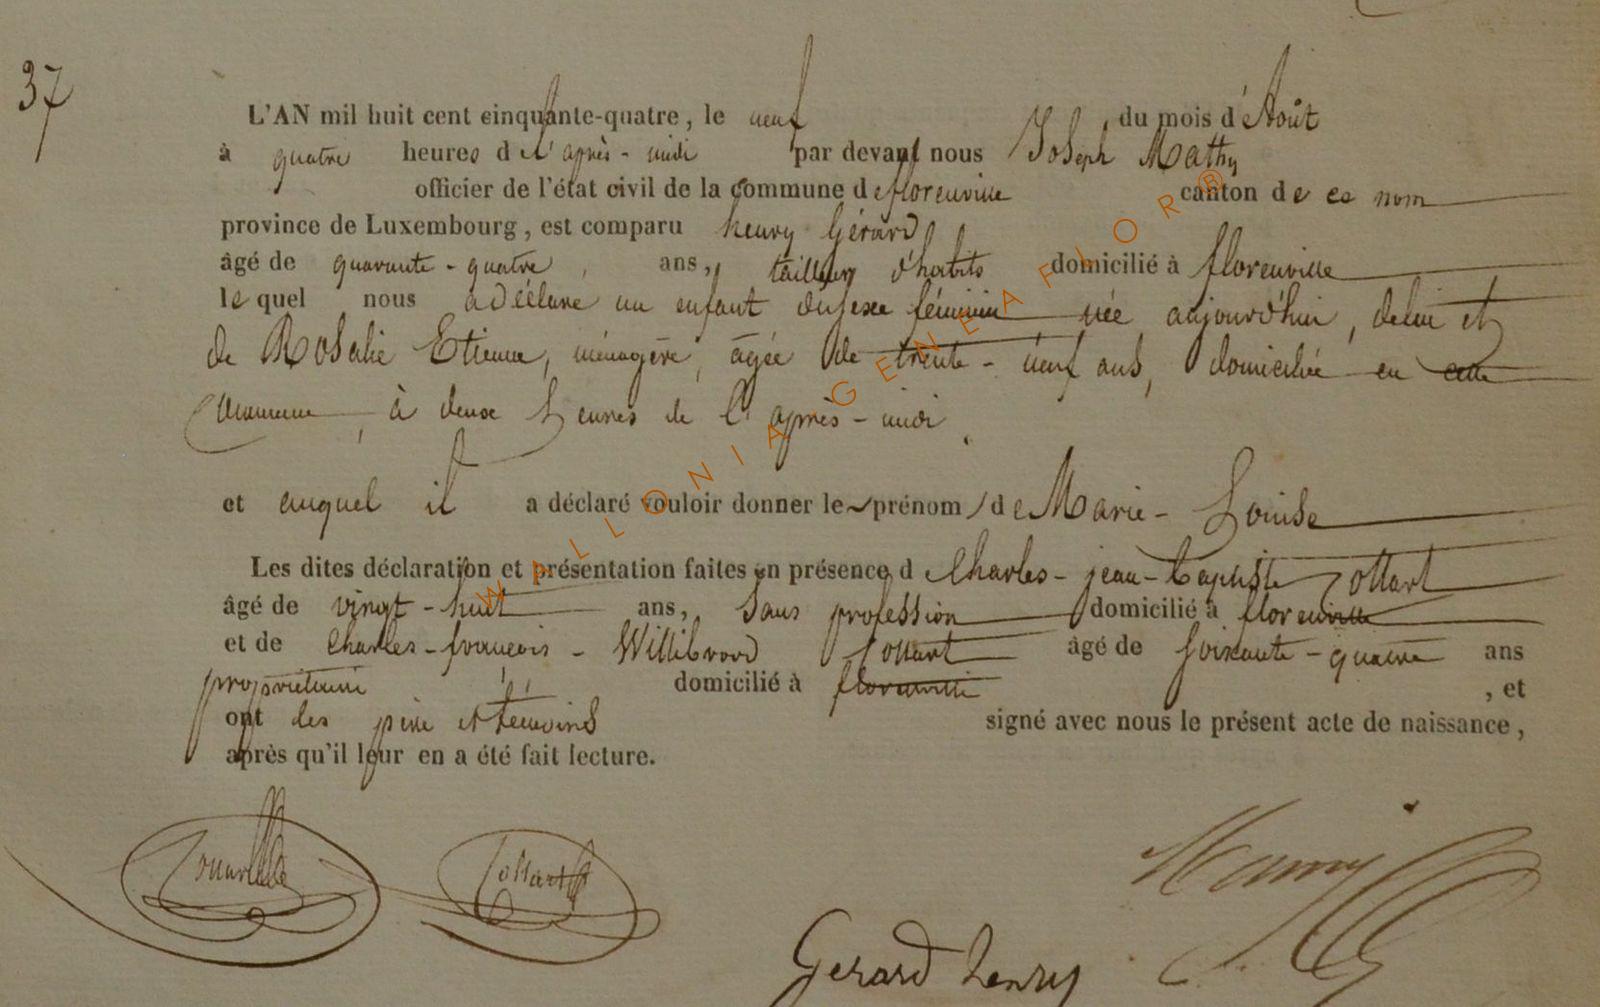 37
L'AN mil huit cent cinquante-quatre, le neuf du mois d'Août
à quatre heures de l'après-midi par devant nous Joseph Mathy
officier de l'état civil de la commune de florenville canton de ce nom
province de Luxembourg, est comparu henry Gérard
âgé de quarante-quatre, ans, tailleur d'habits domicilié à florenville
le quel nous a déclaré un enfant du sexe féminin née aujourd'hui, de lui et
de Rosalie Etienne, ménagère, âgée de trente-neuf ans, domiciliée en cette
Commune, à deux heures de l'après-midi.
et auquel il a déclaré vouloir donner le prénom de Marie-Louise
Les dites déclaration et présentation faites en présence d Charles-jean-baptiste
âgé de vingt-huit ans, sans profession domicilié à florenville
et de Charles-françois-Willibrord âgé de soixante-quatre ans
propriétaire domicilié à florenville, et
ont les père et témoins signé avec nous le présent acte de naissance,
après qu'il leur en a été fait lecture.
Gerard henry
WALLONIA-GENEAFLOR®